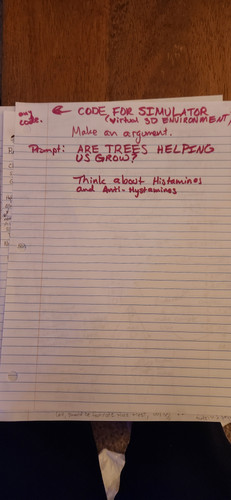 any code. ← CODE FOR SIMULATOR
(virtual 3D ENVIRONMENT)
Make an argument.
Prompt: ARE TREES HELPING
US GROW?
Think about Histamines
and Anti-Hystamines